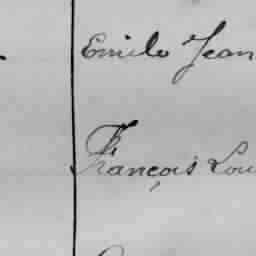 Emile Jean
François Lou